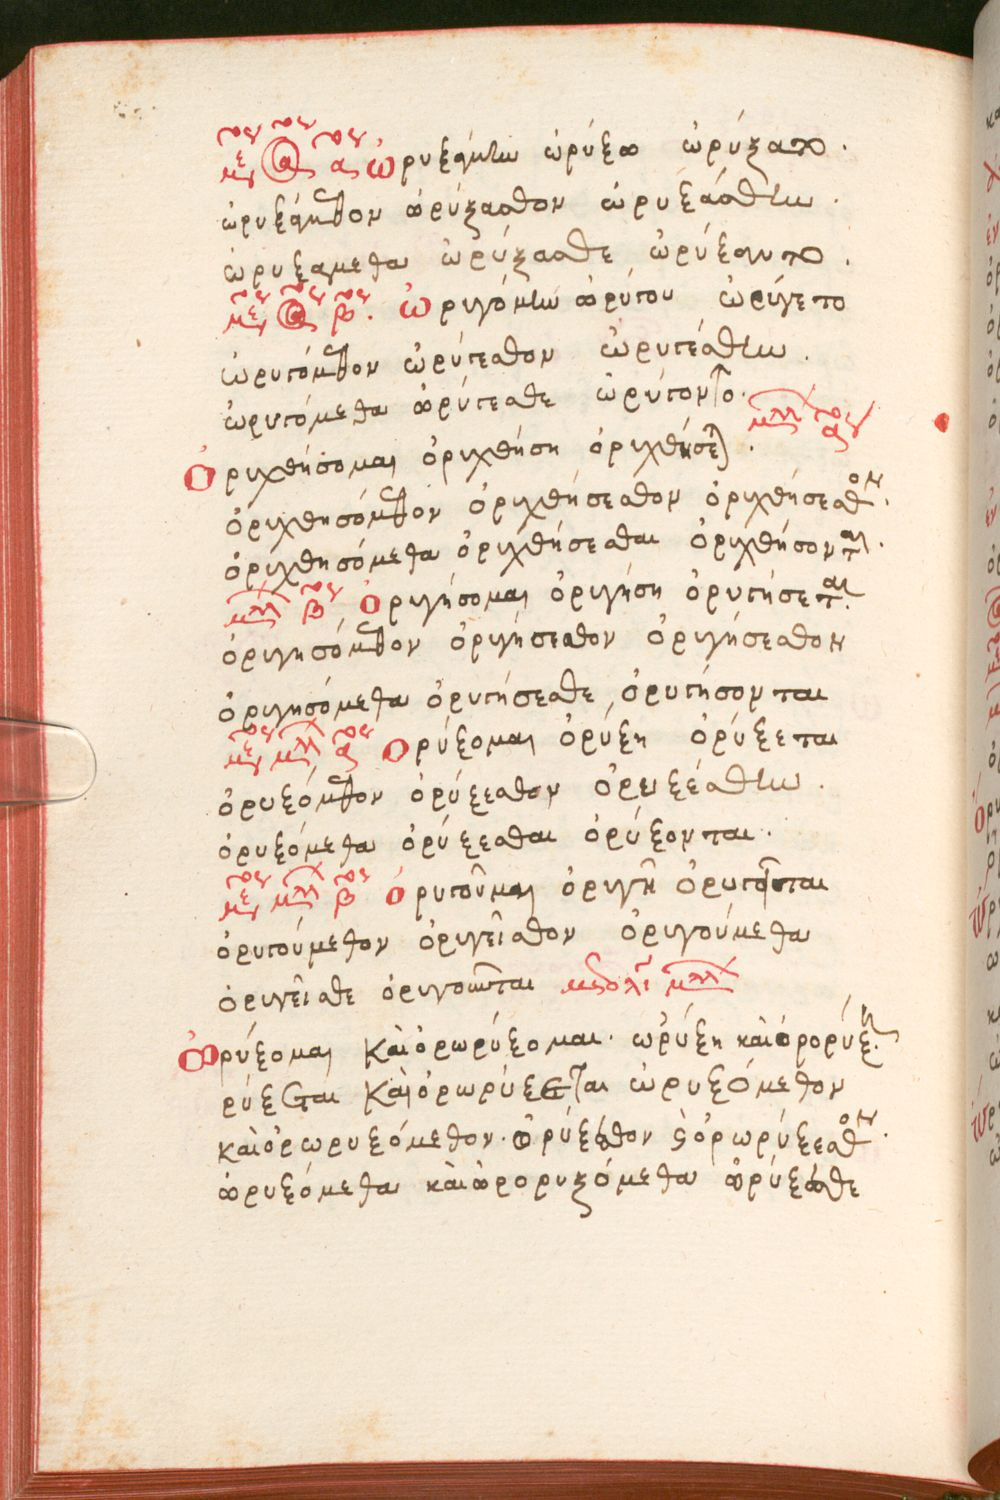 ὠρυξάμην ὠρύξω ὠρύξατο.
ὠρυξάμεθον ὠρύξασθον ὠρυξάσθην.
ὠρυξάμεθα ὠρύξασθε ὠρύξαντο.
β. ὠρυγόμην ὠρύγου ὠρύγετο
ὠρυγόμεθον ὠρύγεσθον ὠρυγέσθην.
ὠρυγόμεθα ὠρύγεσθε ὠρύγοντο.
ὀρυχθήσομαι ὀρυχθήση ὀρυχθήσεται.
ὀρυχθησόμεθον ὀρυχθήσεσθον ὀρυχθήσεσθον.
ὀρυχθησόμεθα ὀρυχθήσεσθαι ὀρυχθήσονται.
β ὀρυγήσομαι ὀρυγήση ὀρυγήσεται.
ὀρυγησόμεθον ὀρυγήσεσθον ὀρυγήσεσθον
ὀρυγησόμεθα ὀρυγήσεσθε ὀρυγήσονται
ὀρύξομαι ὀρύξη ὀρύξεται
ὀρυξόμεθον ὀρύξεσθον ὀρυξέσθην.
ὀρυξόμεθα ὀρύξεσθαι ὀρύξονται.
β ὀρυγοῦμαι ὀρυγῆ ὀρυγεῖται
ὀρυγούμεθον ὀρυγεῖσθον ὀρυγούμεθα
ὀρυγεῖσθε ὀρυγοῦνται
ὠρύξομαι καὶ ὀρωρύξομαι. ὠρύξη καὶ ὀρορύξη.
ρύξεται καὶ ὀρωρύξεται ὠρυξόμεθον
καὶ ὀρωρυξόμεθον. ὠρύξεσθον ϗ ὀρωρύξεσθον.
ὠρυξόμεθα καὶ ὠρορυξόμεθα ὠρύξεσθε